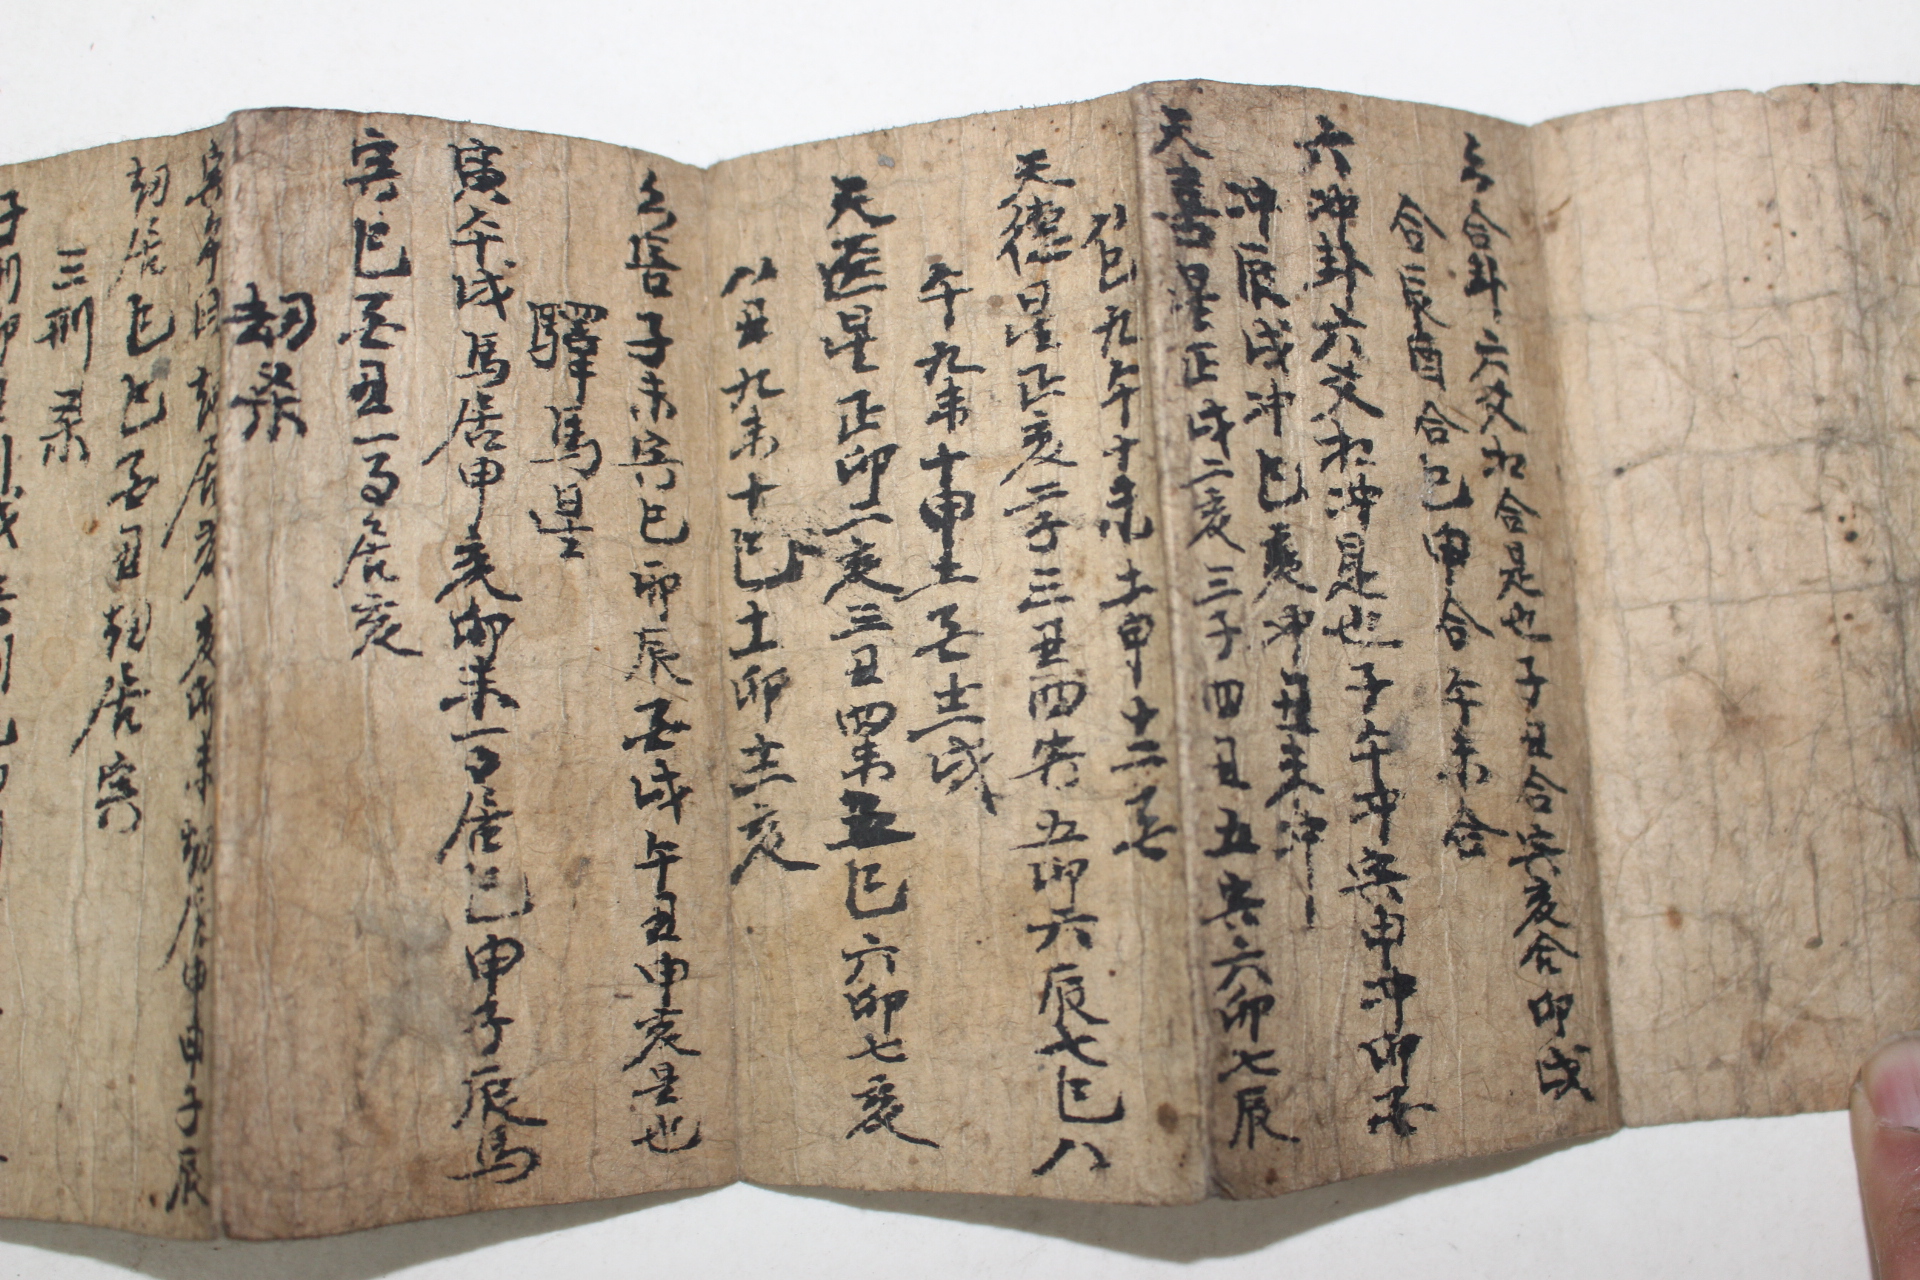 六合卦六爻相合是也子丑合寅亥合卯戌
合辰酉合巳申合午未合
六冲卦六爻相冲是也子午冲寅申冲卯酉
冲辰戌冲巳亥冲丑未冲
天喜星正戌二亥三子四丑五寅六卯七辰
八巳九午十未土申十二酉
天德星正亥二子三丑四寅五卯六辰七巳八
午九未十申土酉士戌
天医星正卯二亥三丑四未五巳六卯七亥
八丑九未十巳土卯士亥
六害子未寅巳卯辰酉戌午丑申亥是也
驛馬星
寅午戌馬居申亥卯未馬居巳申子辰馬
寅巳酉丑馬居亥
劫杀
寅午戌劫居亥亥卯未劫居申申子辰
劫居巳巳酉丑劫居寅
三刑杀